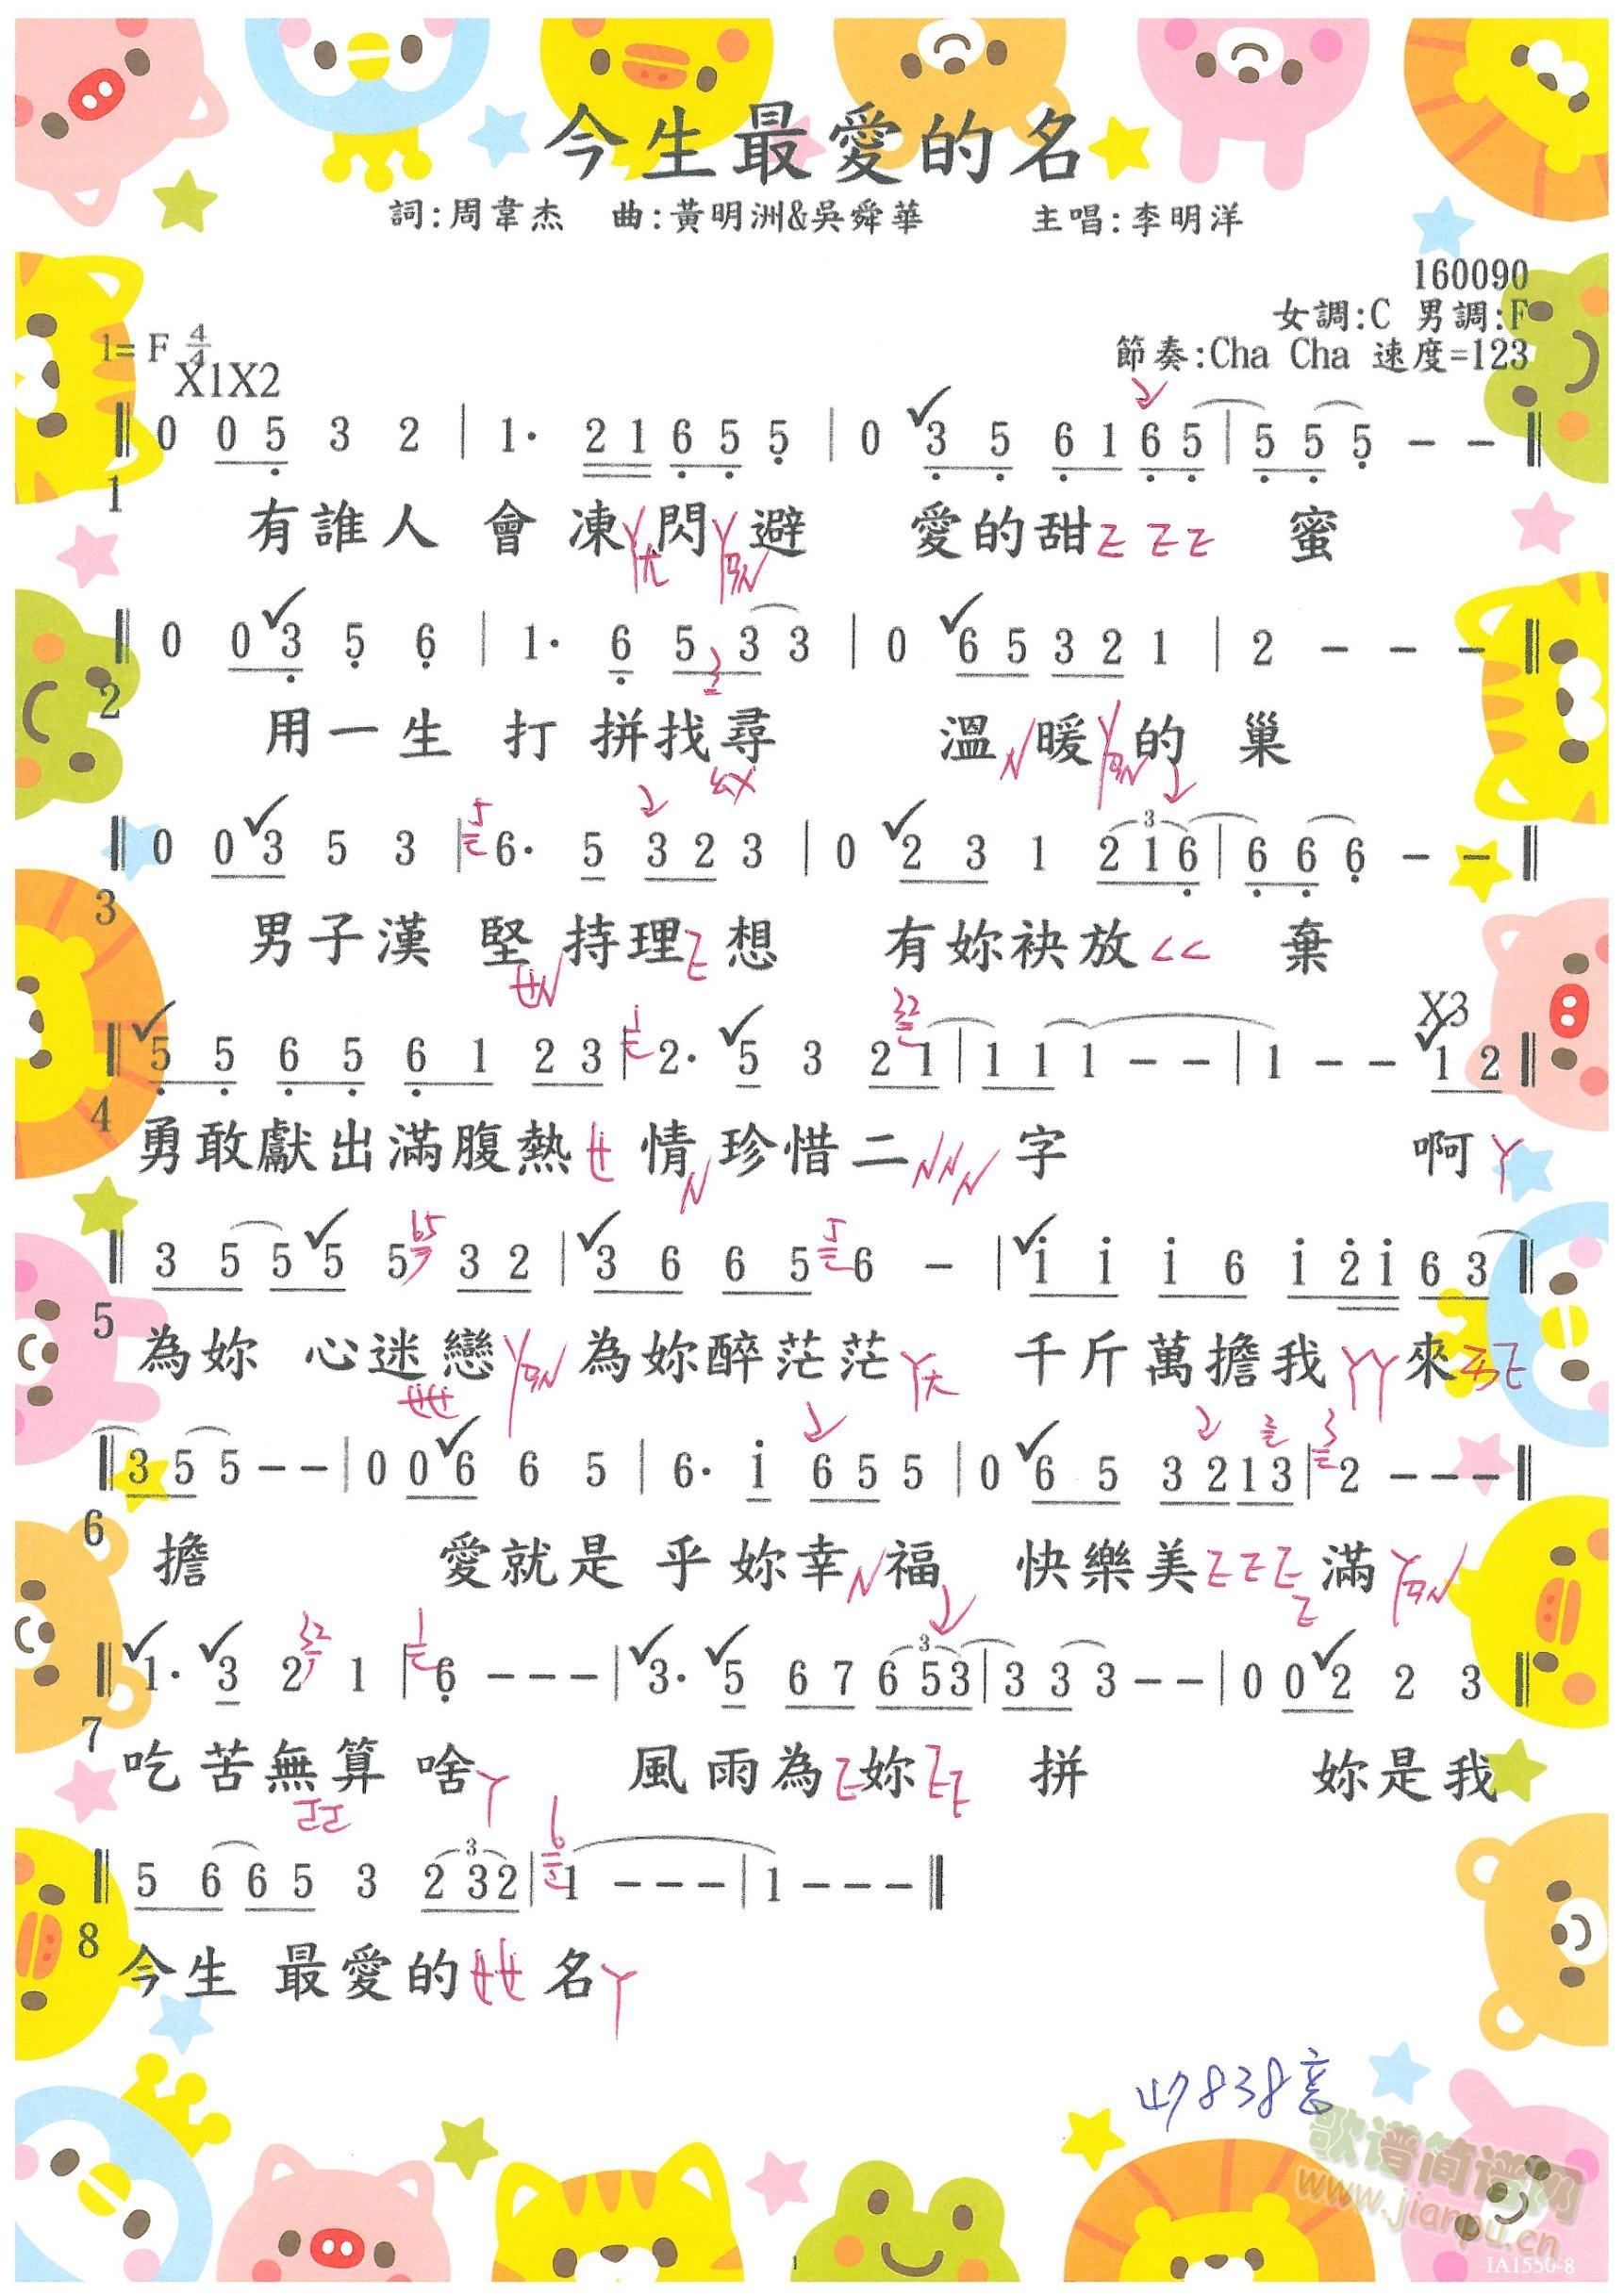 今生最愛的名
詞:周韋杰 曲:黃明洲&吳舜華 主唱:李明洋
160090
女調:C 男調:F
1=F 4/4 節奏:Cha Cha 速度=123
X1X2
0 0 5 3 2 | 1· 2 1 6 5 5 | 0 3 5 6 1 6 5 | 5 5 5 - -
1 有誰人 會 凍閃避 愛的甜 蜜
0 0 3 5 6 | 1· 6 5 3 3 | 0 6 5 3 2 1 | 2 - - -
2 用一生 打 拼找尋 溫暖的 巢
0 0 3 5 3 | 6· 5 3 2 3 | 0 2 3 1 2 1 6 | 6 6 6 - -
3 男子漢 堅 持理想 有妳袂放 棄
X3
5 5 6 5 6 1 2 3 | 2· 5 3 2 1 | 1 1 1 - - | 1 - - 1 2
4 勇敢獻出滿腹熱 情 珍惜二 字 啊
3 5 5 5 5 3 2 | 3 6 6 5 6 - | 1 1 1 6 1 2 1 6 3
5 為妳 心迷戀 為妳醉茫茫 千斤萬擔我 來
3 5 5 - - | 0 0 6 6 5 | 6· 1 6 5 5 | 0 6 5 3 2 1 3 | 2 - - -
6 擔 愛就是 乎 妳幸 福 快樂美 滿
1· 3 2 1 | 6 - - - | 3· 5 6 7 6 5 3 | 3 3 3 - - | 0 0 2 2 3
7 吃 苦無算 啥 風 雨為 妳 拼 妳是我
5 6 6 5 3 2 3 2 | 1 - - - | 1 - - -
8 今生 最愛的 名
歌谱简谱网
www.jianpu.cn
1
IA1550-8